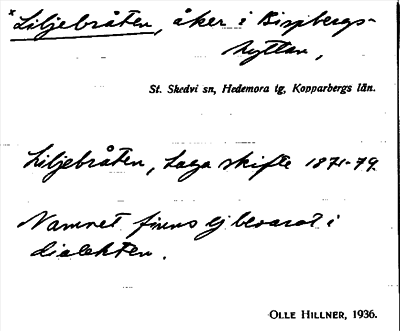 *Liljebråten, åker i Bispbergs-
hyttan,
St. Skedvi sn, Hedemora tg, Kopparbergs län.
Liljebråten, Laga skifte 1871-79.
Namnet finns ej bevarat i
dialekten.
OLLE HILLNER, 1936.